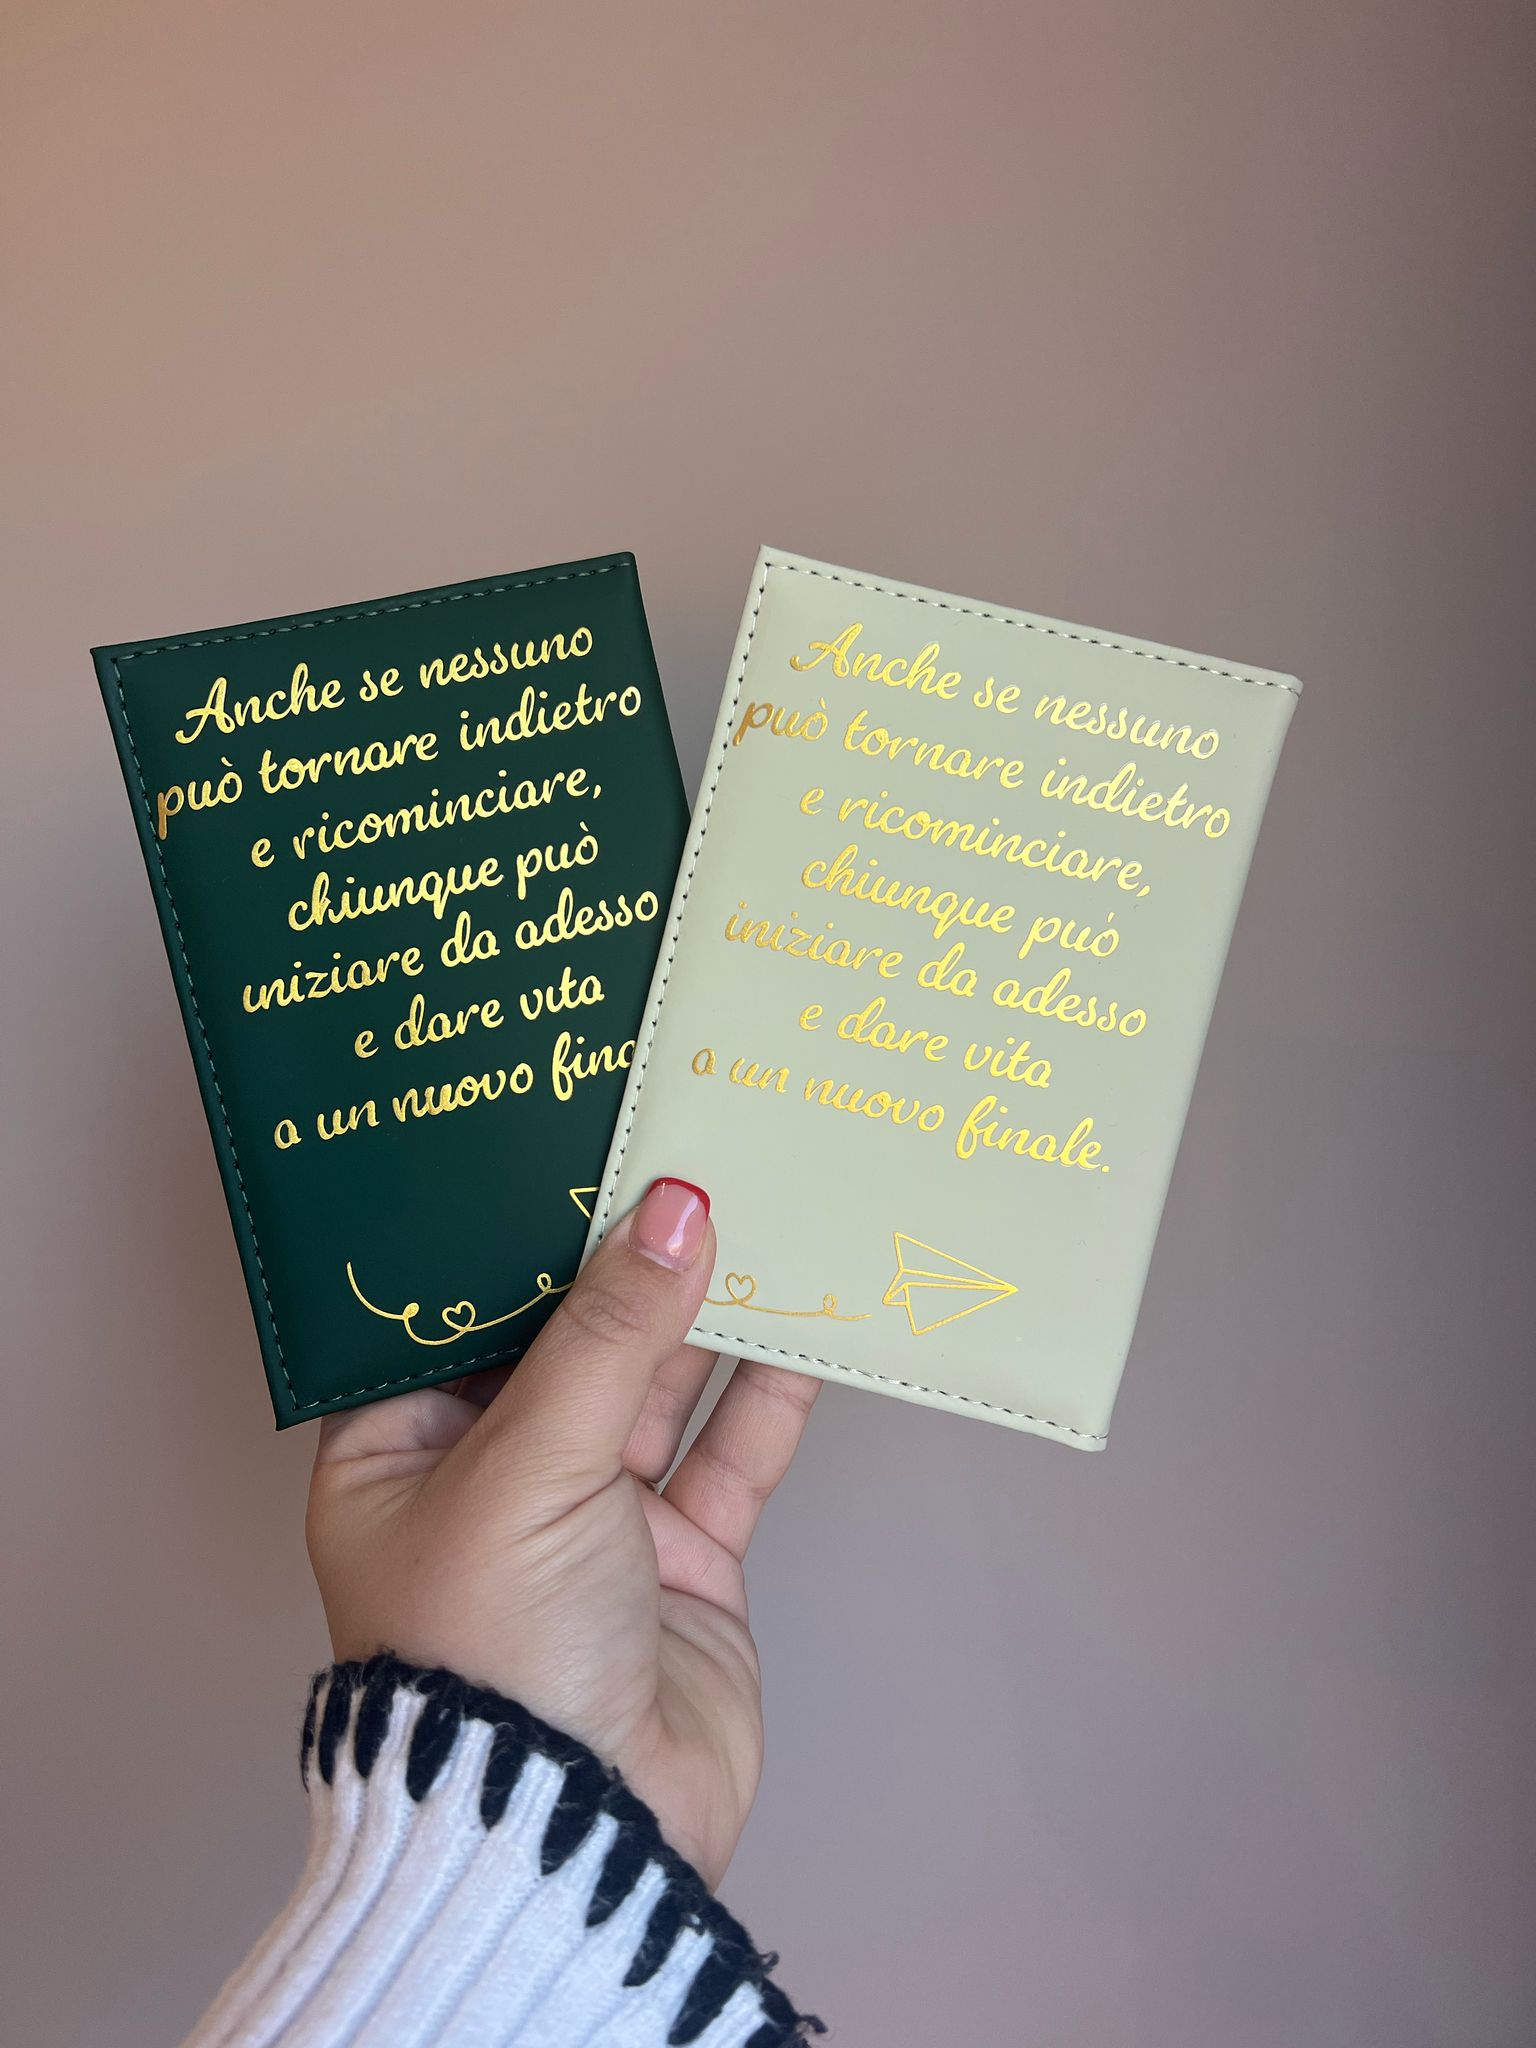 Anche se nessuno
può tornare indietro
e ricominciare,
chiunque può
iniziare da adesso
e dare vita
a un nuovo
Anche se nessuno
può tornare indietro
e ricominciare,
chiunque può
iniziare da adesso
e dare vita
a un nuovo finale.